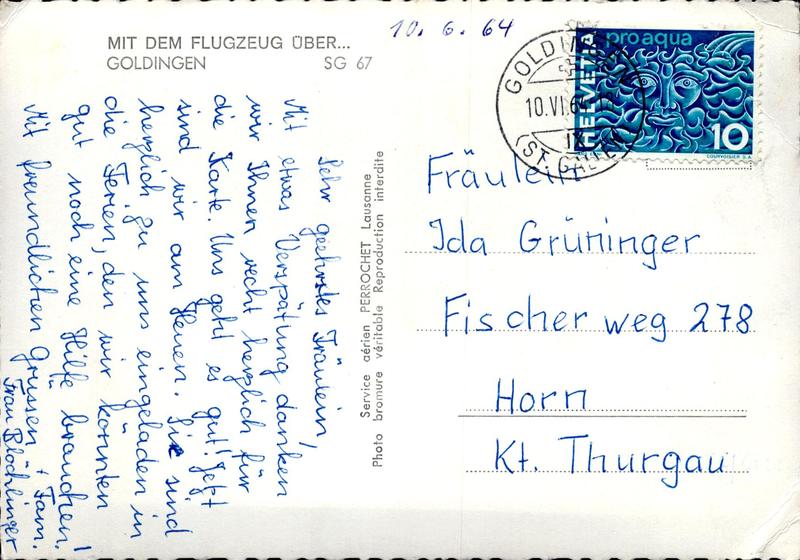 MIT DEM FLUGZEUG ÜBER...
GOLDINGEN SG 67
10. 6. 64
GOLDINGEN
10.VI.64
(ST. GALLEN)
HELVETIA
pro aqua
10
COURVOISIER S.A.
Sehr geehrtes Fräulein,
Mit etwas Verspätung danken
wir Ihnen recht herzlich für
die Karte. Uns geht es gut! Jetzt
sind wir am Heuen. Sie sind
herzlich zu uns eingeladen in
die Ferien, den wir könnten
gut noch eine Hilfe brauchen!
Mit freundlichen Grüssen + Fam.
Frau Blöchlinger
Service aérien PERROCHET Lausanne
Photo bromure véritable Reproduction interdite
Fräulein
Ida Grüninger
Fischerweg 278
Horn
Kt. Thurgau